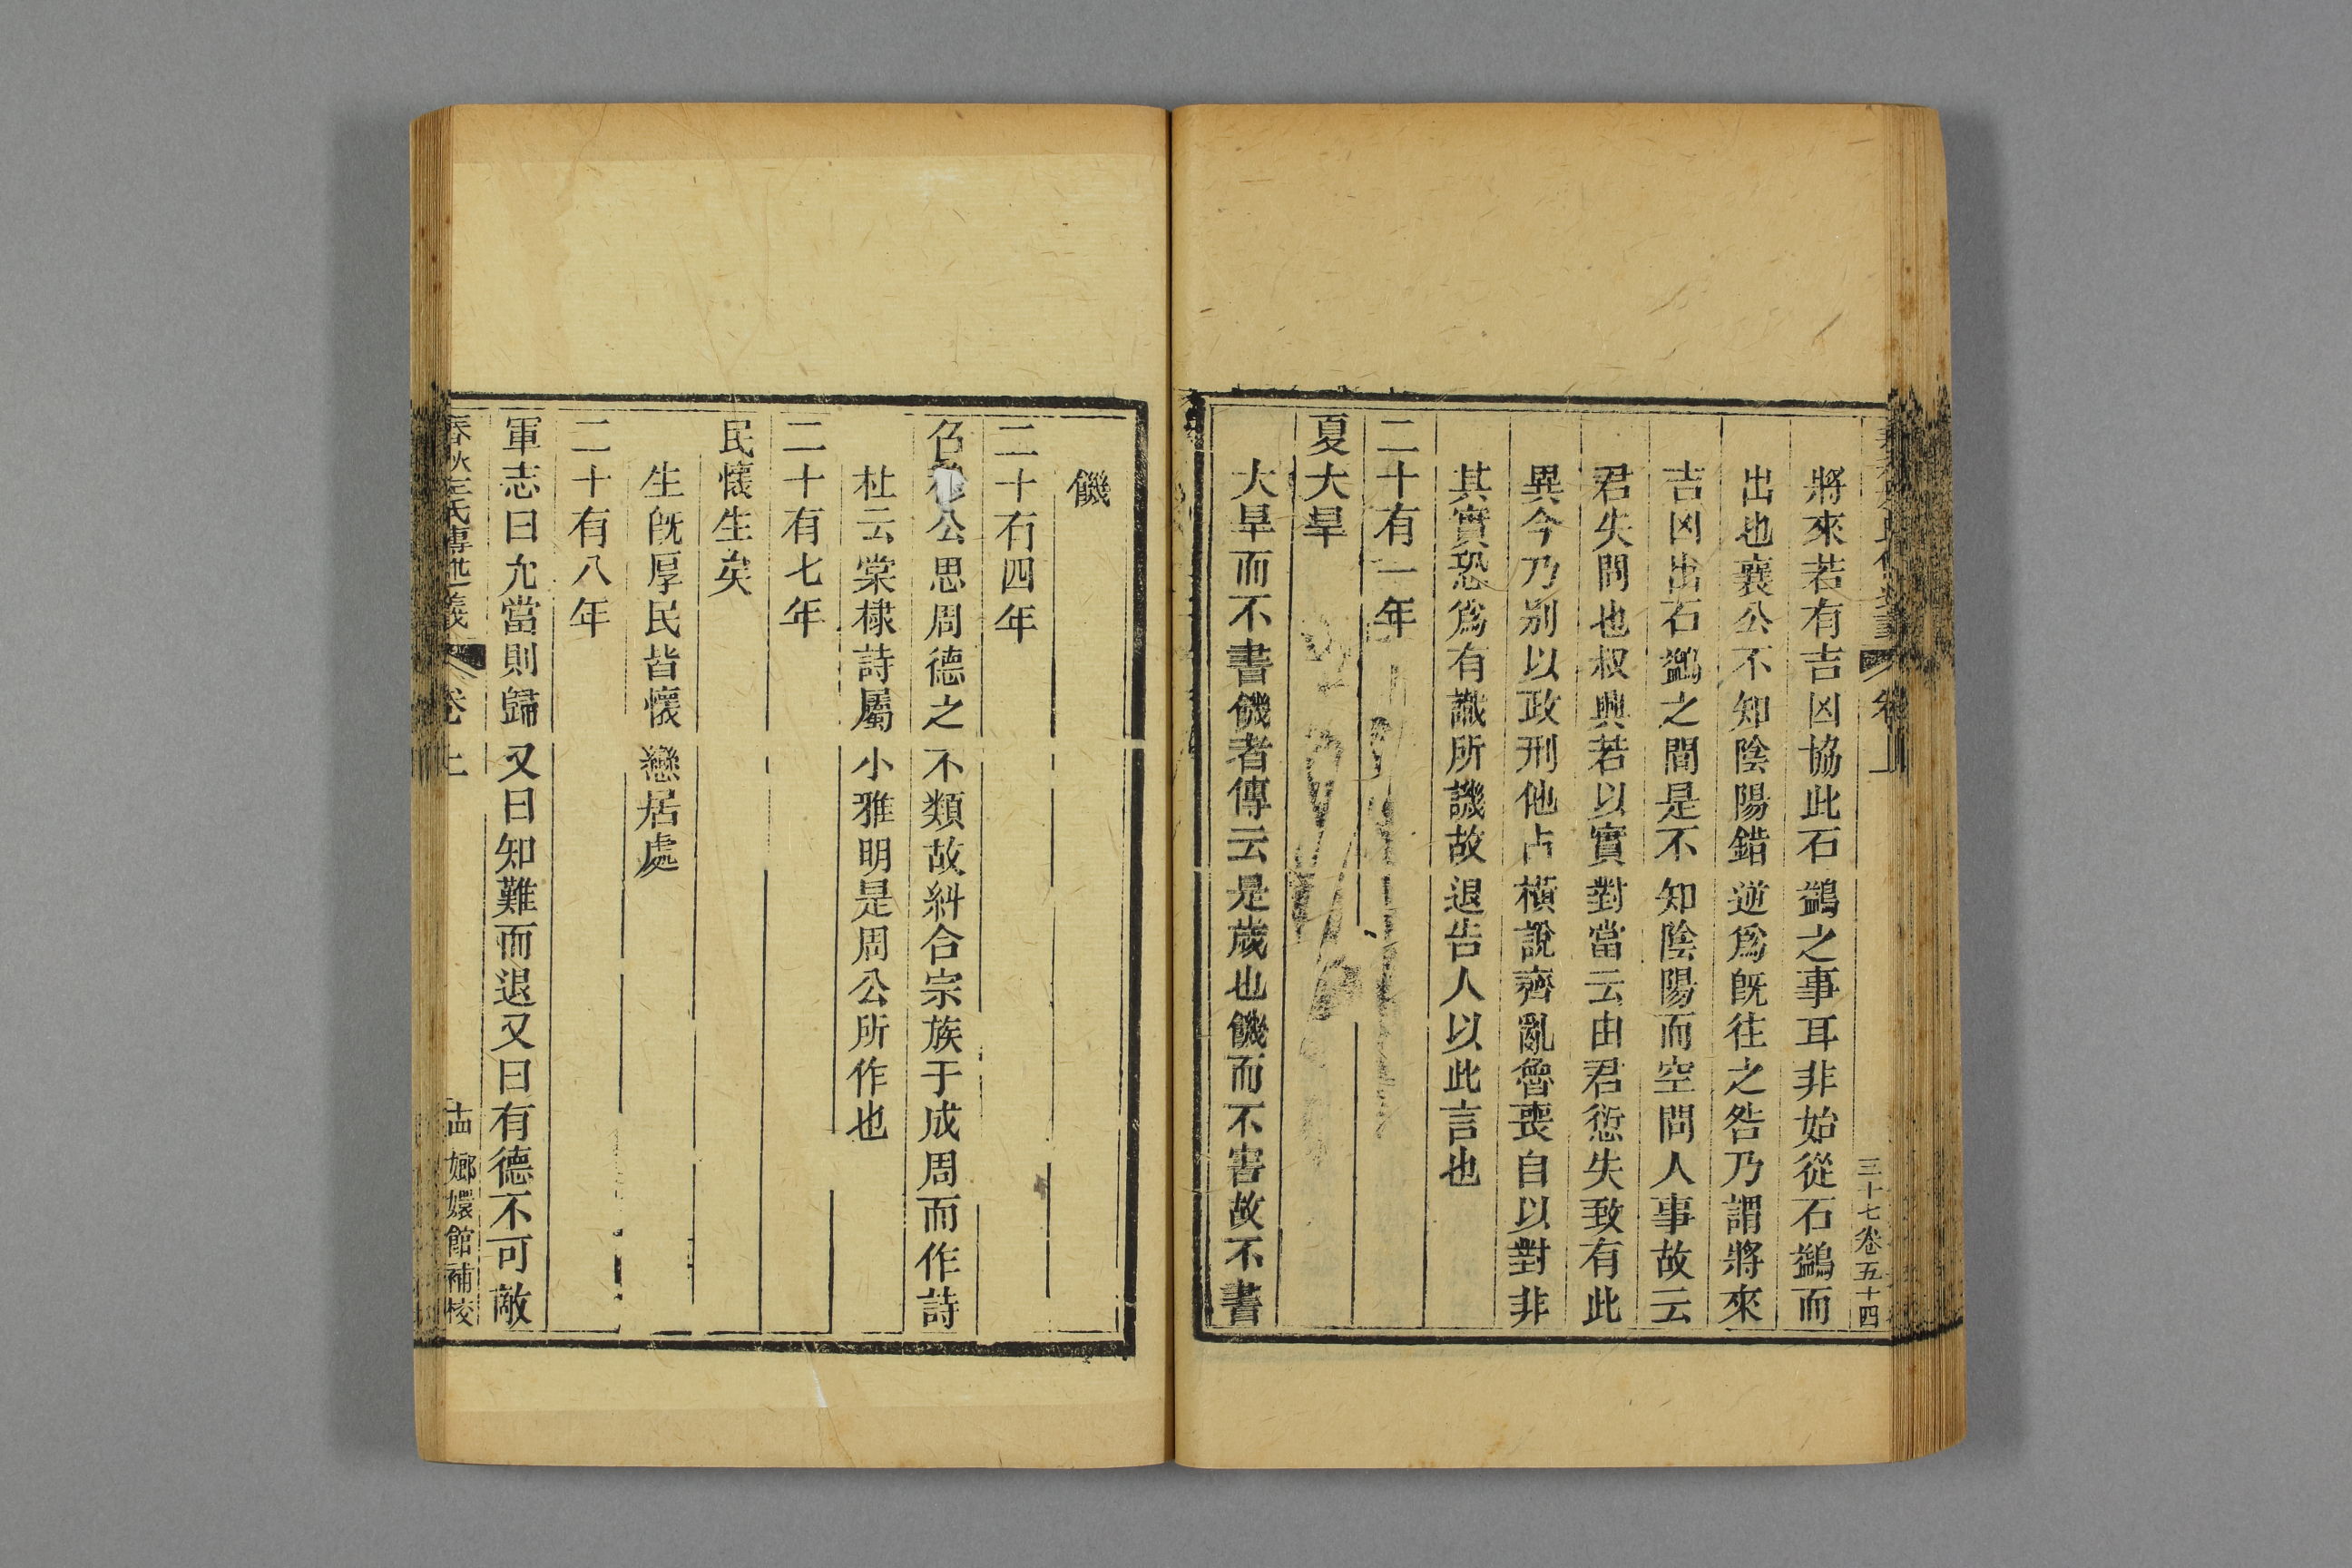 三十七卷五十四
將來若有吉凶協此石鷁之事耳非始從石鷁而
出也襄公不知陰陽錯逆爲旣往之咎乃謂將來
吉凶出石鷁之間是不知陰陽而空問人事故云
君失問也叔興若以實對當云由君愆失致有此
異今乃别以政刑他占橫說齊亂魯喪自以對非
其實恐爲有識所譏故退告人以此言也
二十有一年
夏大旱
大旱而不書饑者傳云是歲也饑而不害故不書
饑
二十有四年
召穆公思周德之不類故糾合宗族于成周而作詩
杜云棠棣詩屬小雅明是周公所作也
二十有七年
民懷生矣
生旣厚民皆懷戀居處
二十有八年
軍志曰允當則歸又曰知難而退又曰有德不可敵
春秋左氏傳述義 卷上 十四 嫏嬛館補校